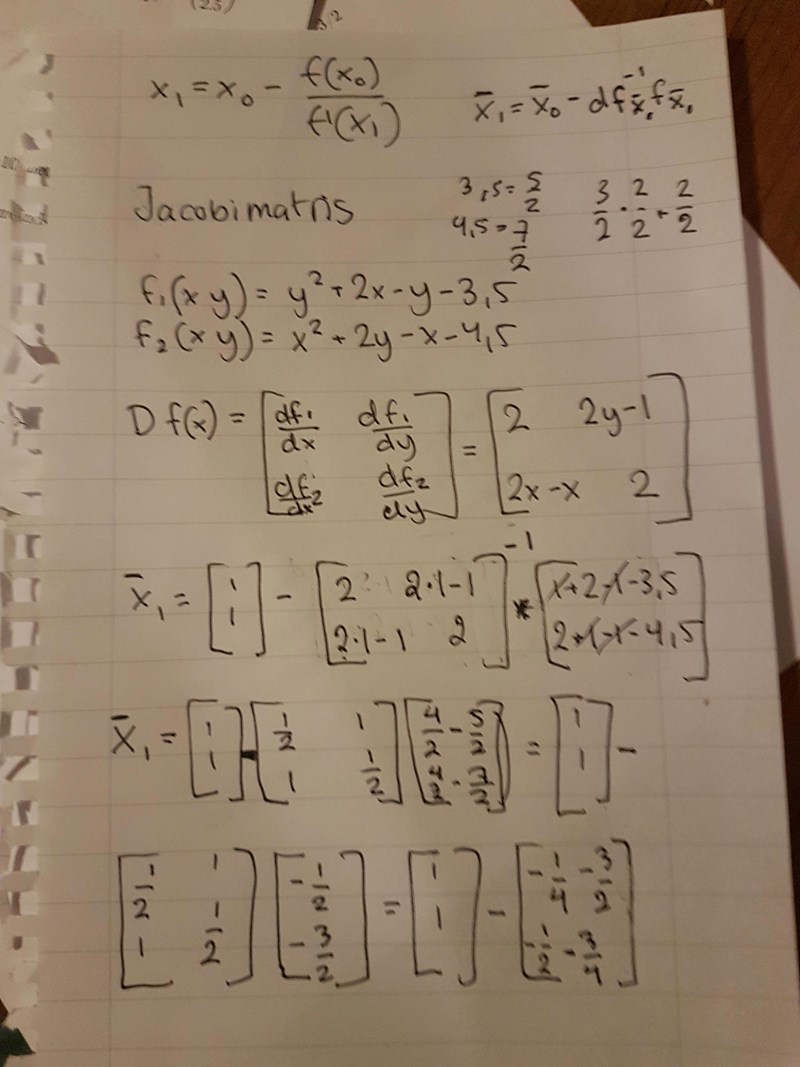 (2.5)
x₁ = x₀ - f(x₀) / f'(x₁)    x̄₁ = x̄₀ - df⁻¹x̄₀ f x̄₀
Jacobimatris    3,5 = 5/2    3/2 · 2/2 + 2/2
4,5 = 7/2
f₁(x y) = y² + 2x - y - 3,5
f₂(x y) = x² + 2y - x - 4,5
D f(x) = [df₁/dx  df₁/dy; df₂/dx  df₂/dy] = [2  2y-1; 2x-x  2]
x̄₁ = [1; 1] - [2  2·1-1; 2·1-1  2]⁻¹ * [1+2-1-3,5; 2+1-1-4,5]
x̄₁ = [1; 1] - [1/2  1; 1  1/2] [4/2 - 5/2; 4/2 - 7/2] = [1; 1] -
[1/2  1; 1  1/2] [-1/2; -3/2] = [1; 1] - [-1/4 - 3/2; -1/2 - 3/4]